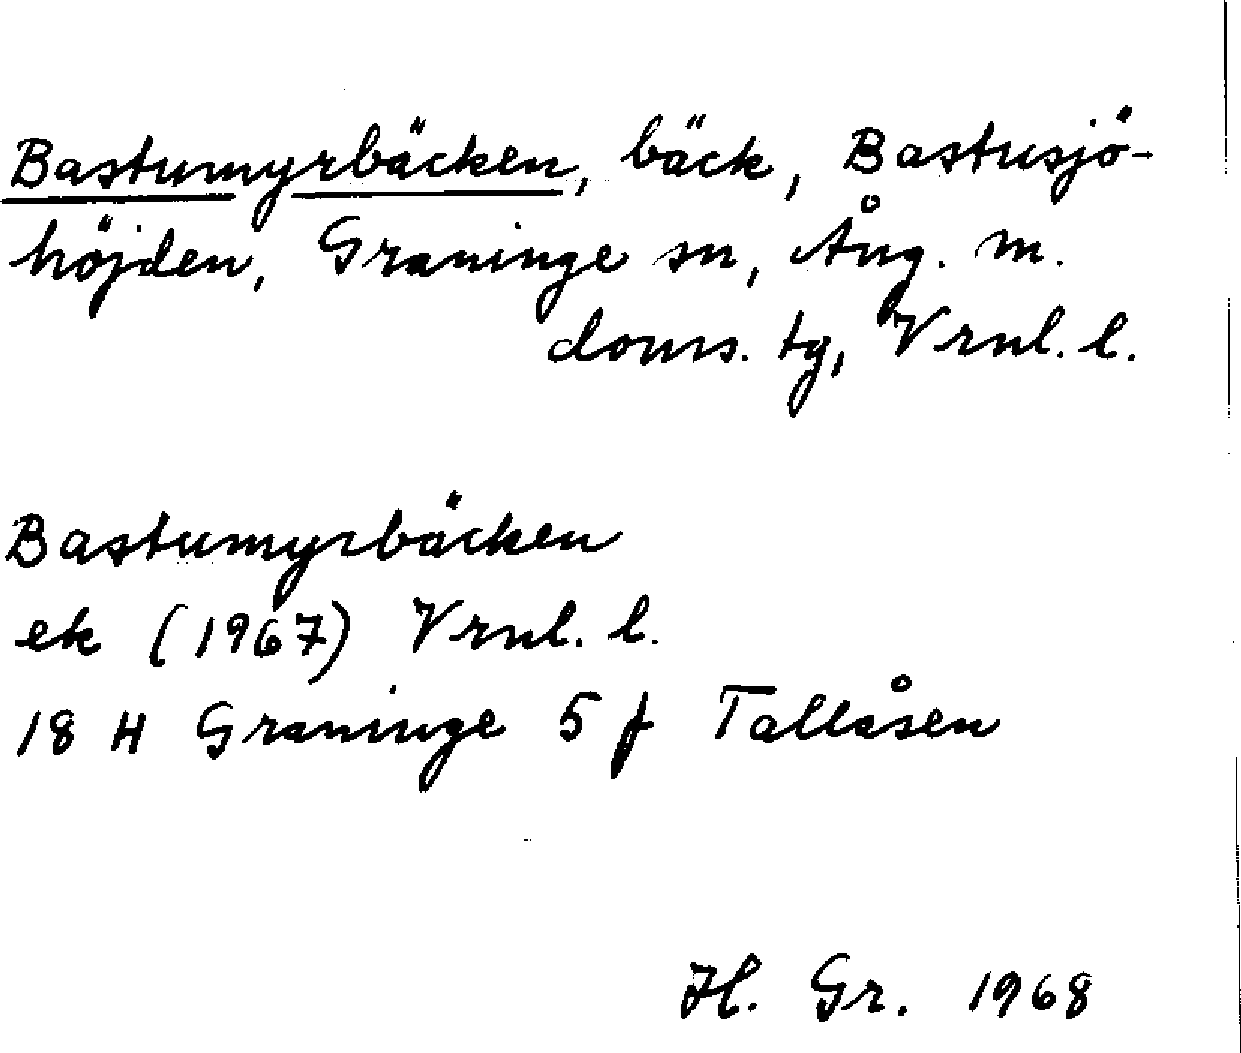 Bastumyrbäcken, bäck, Bastusjö-
höjden, Graninge sn, Ång. m.
doms. tg, Vrnl. l.
Bastumyrbäcken
ek (1967) Vrnl. l.
18 H Graninge 5 f Tallåsen
H. Gr. 1968